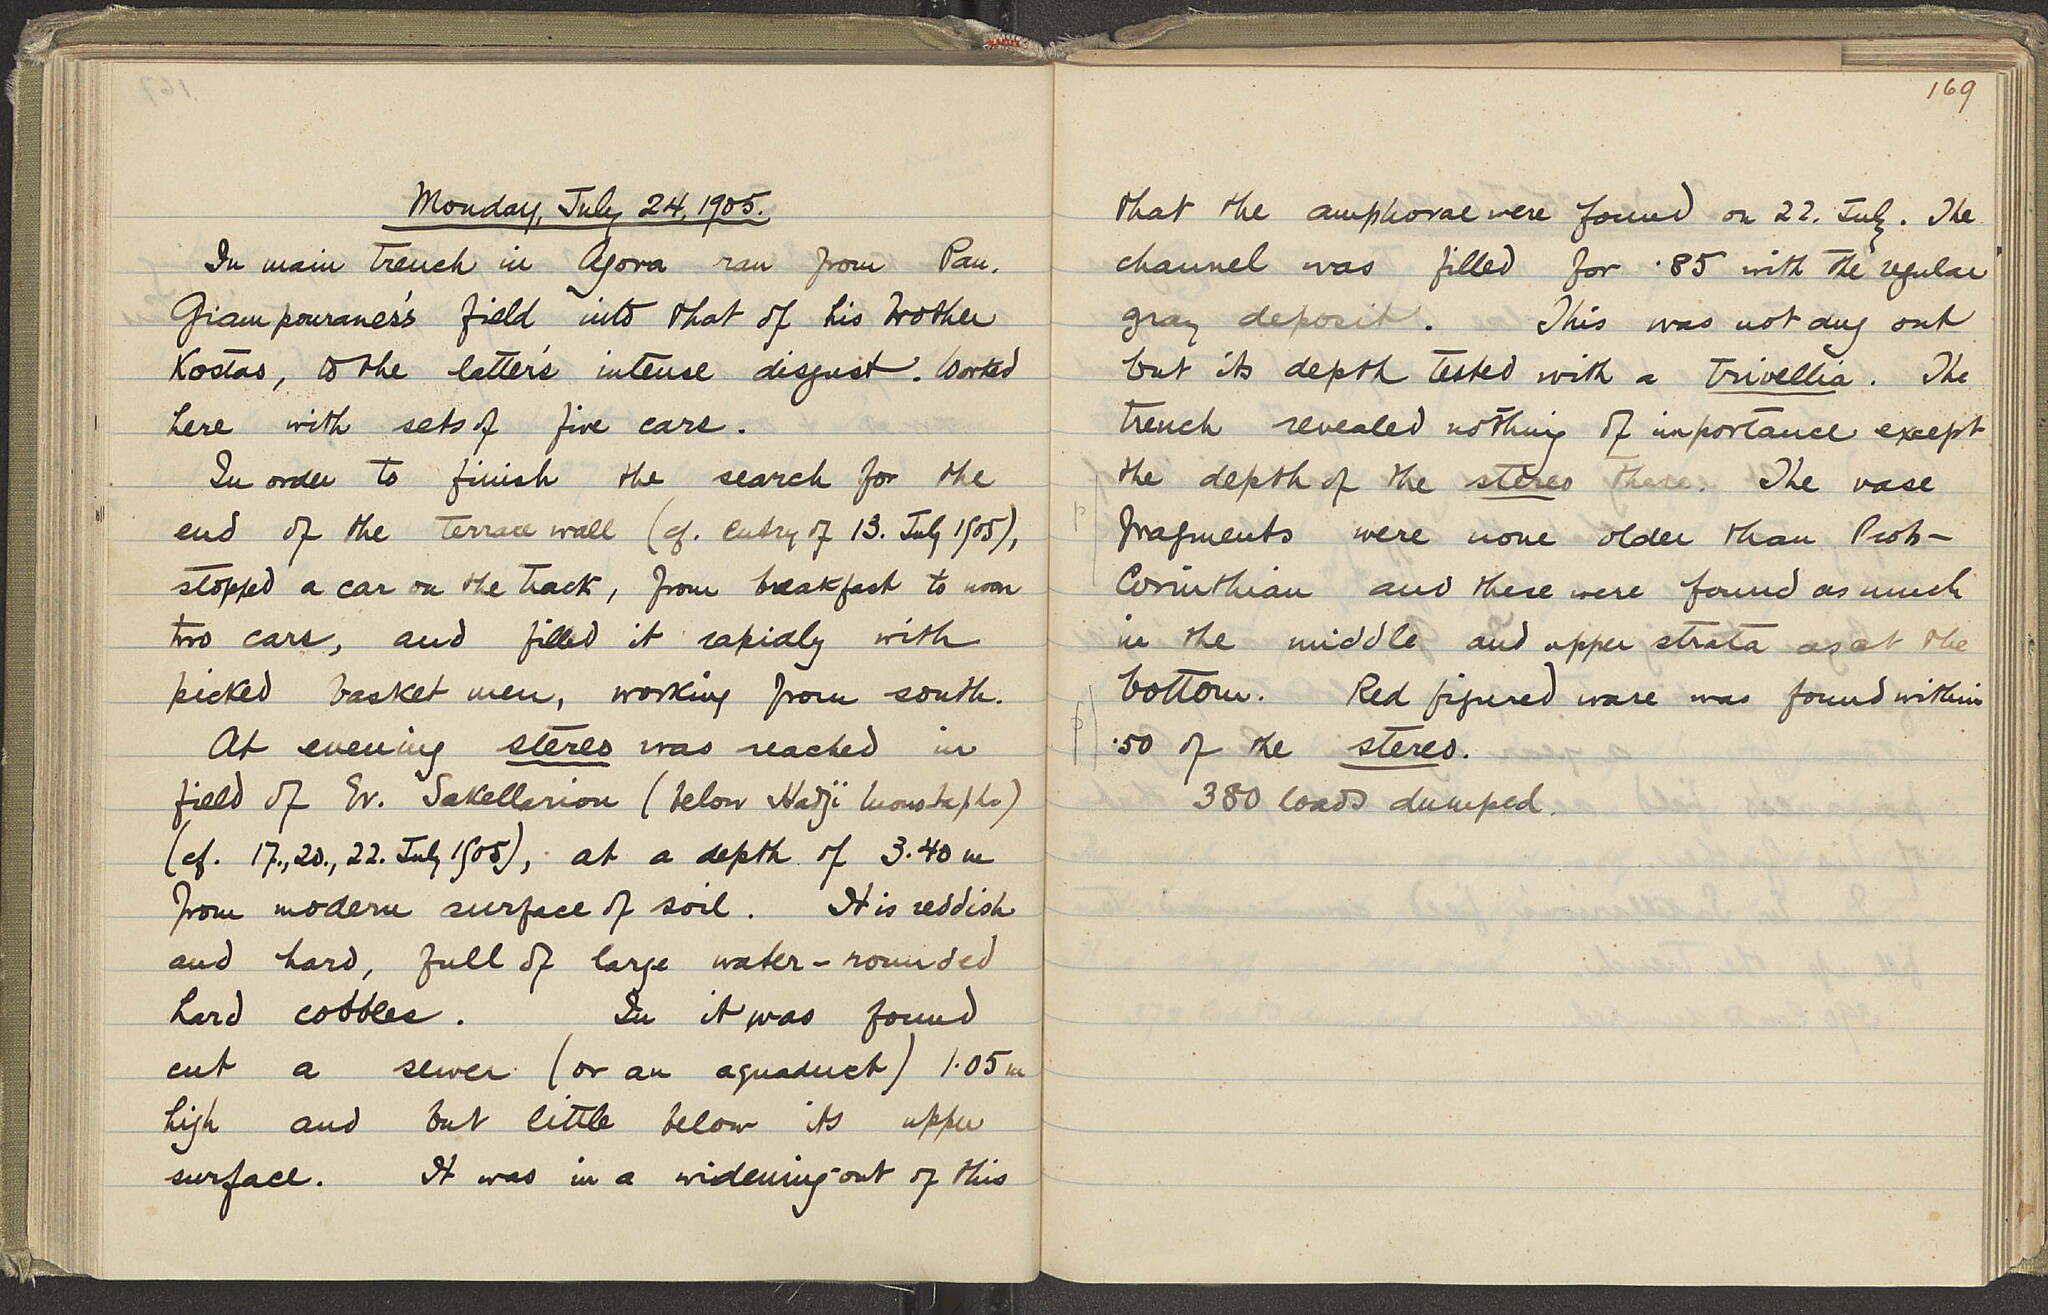 Monday, July 24, 1905.
In main trench in Agora ran from Pan.
Giampouranes's field into that of his brother
Kostas, to the latter's intense disgust. Worked
here with sets of five cars.
In order to finish the search for the
end of the terrace wall (cf. entry of 13. July 1905),
stopped a car on the track, from breakfast to noon
two cars, and filled it rapidly with
picked basket men, working from south.
At evening stereo was reached in
field of Ev. Sakellariou (below Hadji Moustapha)
(cf. 17., 20., 22. July 1905), at a depth of 3.40 m
from modern surface of soil. It is reddish
and hard, full of large water-rounded
hard cobbles. In it was found
cut a sewer (or an aquaduct) 1.05 m
high and but little below its upper
surface. It was in a widening-out of this
169
that the amphorae were found on 22. July. The
channel was filled for .85 with the regular
gray deposit. This was not dug out
but its depth tested with a trivellia. The
trench revealed nothing of importance except
the depth of the stereo there. The vase
fragments were none older than Proto-
Corinthian and these were found as much
in the middle and upper strata as at the
bottom. Red figured ware was found within
.50 of the stereo.
380 loads dumped.